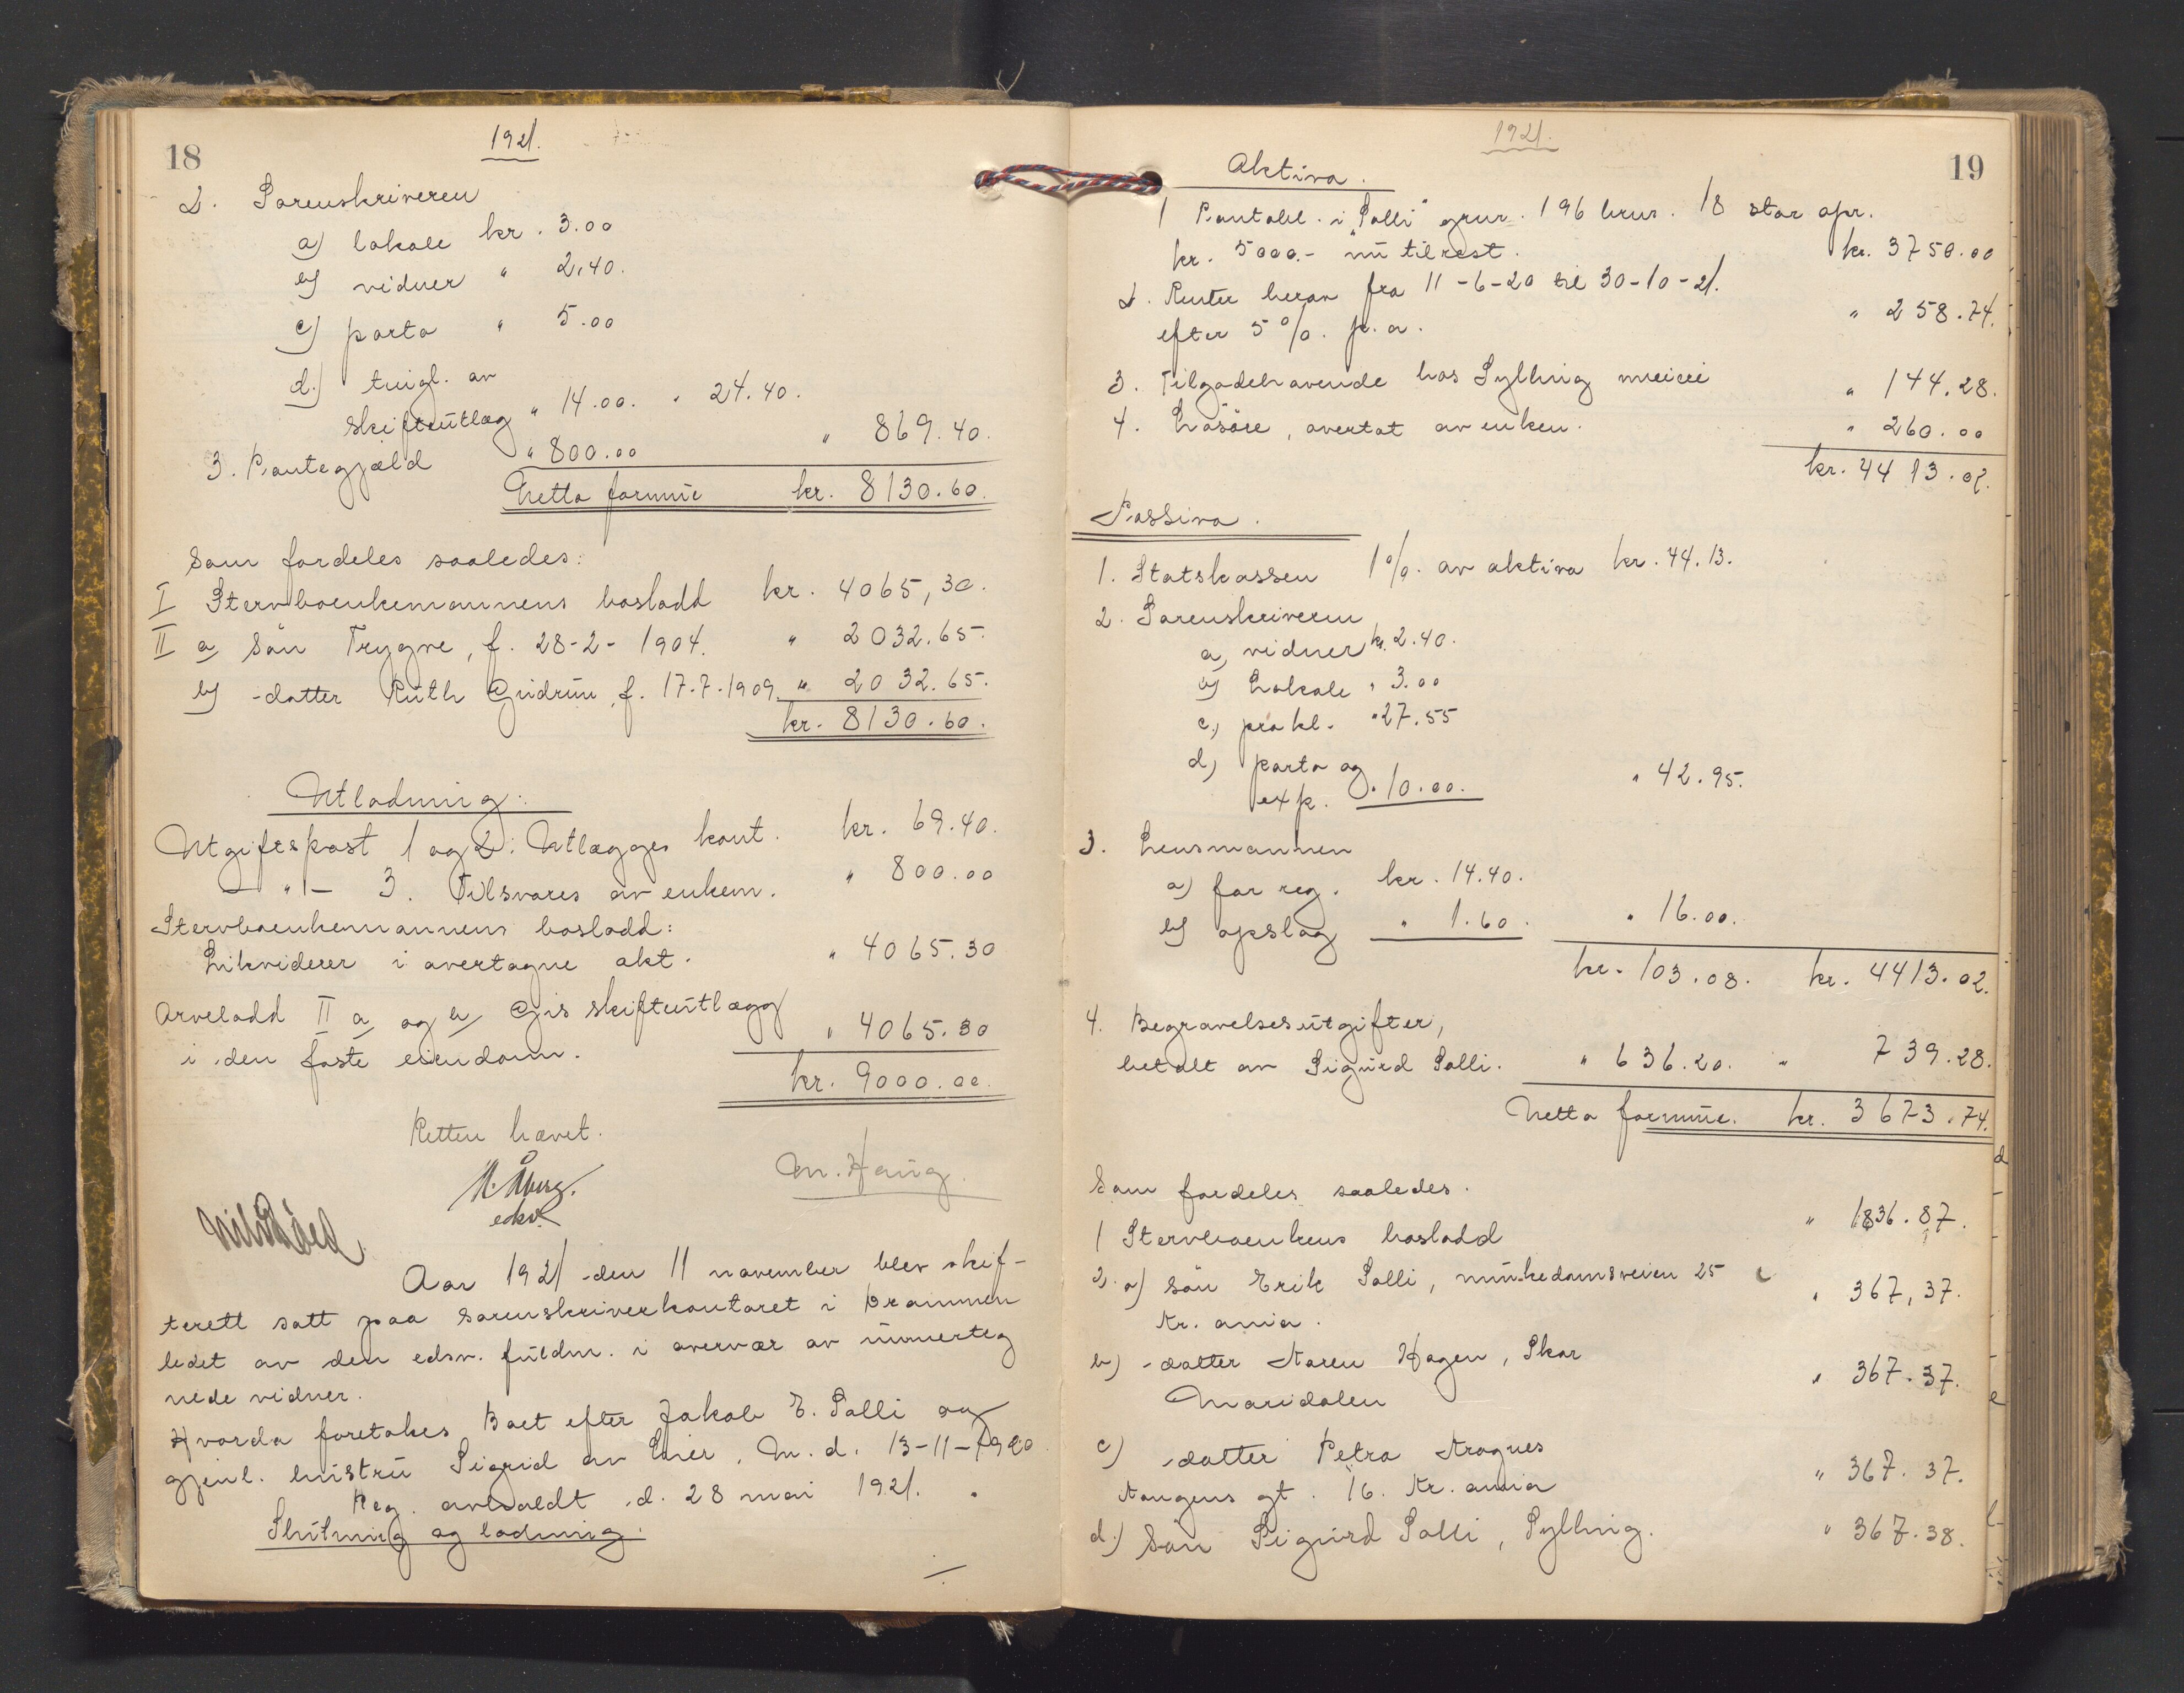 18
1921.
2. Sorenskriveren
a) lokale kr. 3.00
b) vidner " 2.40.
c) porto " 5.00
d.) tingl. av
skifteutlæg " 14.00. " 24.40.
" 869.40.
3. Pantegjæld " 800.00
Netto formue kr. 8130.60.
Som fordeles saaledes:
I Stervboenkemannens boslodd kr. 4065,30.
II a, Sön Trygve, f. 28-2-1904. " 2032.65.
b) -datter Ruth Gudrun, f. 17.7.1909. " 2032.65.
kr. 8130.60.
Utlodning:
Utgiftspost 1 og 2: Utlægges kont. kr. 69.40.
— " — 3. Tilsvares av enkem. " 800.00
Stervboenkemannens boslodd:
Likviderer i overtagne akt. " 4065.30
Arvelodd II a, og b, Gis skifteutlægg
i den faste eiendom. " 4065.30
kr. 9000.00.
Retten hævet.
M. Haug.
edsv.
Aar 1921 den 11 november blev skif-
terett satt paa sorenskriverkontoret i Drammen
ledet av den edsv. fuldm. i overvær av underteg
nede vidner.
Hvorda foretokes Boet efter Jakob E. Solli og
gjenl. hustru Sigrid av Lier, M. d. 13-11-1920.
Reg. avholdt d. 28 mai 1921.
Slutning og lodning:
19
1921.
Aktiva.
1 Pantobl. i "Solli" gnr. 196 brnr. 18 stor opr.
kr. 5000.- nu tilrest. kr. 3750.00
2. Renter herav fra 11-6-20 til 30-10-21.
efter 5%. p.a. " 258.74.
3. Tilgodehavende hos Sylling meieri " 144.28.
4. Lösöre, overtat av enken. " 260.00
kr. 4413.02.
Passiva.
1. Statskassen 1%. av aktiva kr. 44.13.
2. Sorenskriveren
a, vidner kr. 2.40.
b) Lokale " 3.00
c, prokl. " 27.55
d) porto og
exp. " 10.00. " 42.95.
3. Lensmannen
a) for reg. kr. 14.40.
b) opslag " 1.60. " 16.00.
kr. 103.08. kr. 4413.02.
4. Begravelsesutgifter,
betalt av Sigurd Solli. " 636.20. " 739.28.
Netto formue. kr. 3673.74.
Som fordeles saaledes.
1 Stervboenkens boslodd " 1836.87.
2. a) Sön Erik Solli, munkedamsveien 25
Kr.ania. " 367,37.
b) -datter Karen Hagen, Skar
Maridalen " 367.37.
c) -datter Petra Kragnes
Kongens gt. 16. Kr.ania " 367.37.
d.) Sön Sigurd Solli, Sylling. " 367.38.